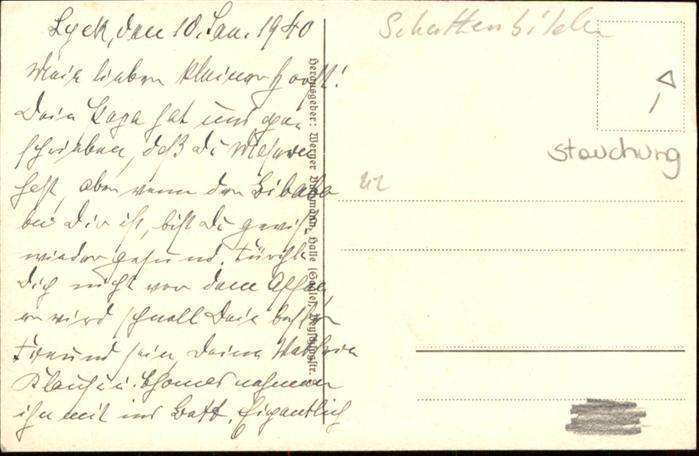 Lyck, den 10. Jan. 1940
Mein lieber kleiner
Dein Papa hat uns ge-
schrieben, daß Du Masern
hast, aber wenn der
bei Dir ist, bist Du gewiß
wieder gesund. Fürchte
Dich nicht vor dem Affen,
er wird schnell Dein bester
Freund sein, Deine
Klaus u. Thomas nehmen
ihn mit ins Bett. Eigentlich
Herausgeber: Werner Halle (Saale),
Schattenbilder
Stauchung